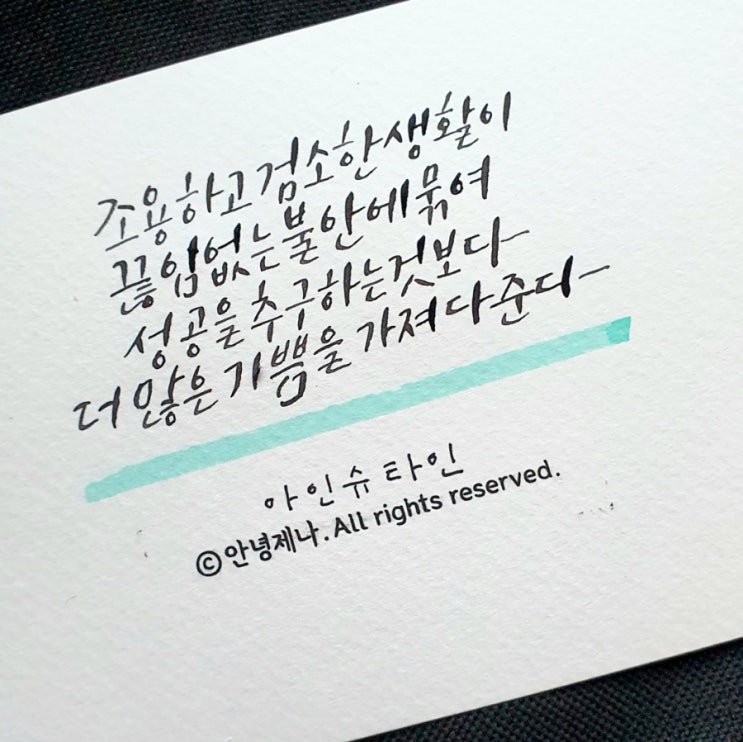 조용하고 검소한 생활이
끊임없는 불안에 묶여
성공을 추구하는것보다~
더 많은 기쁨을 가져다준다~
아인슈타인
©안녕제나.All rights reserved.